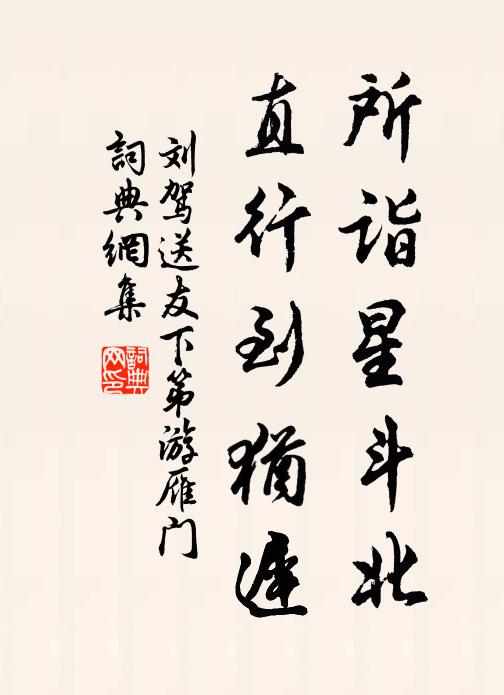 所诣星斗北
直行到犹遲
刘驾送友下第游雁门
詞典網集
詞典网印